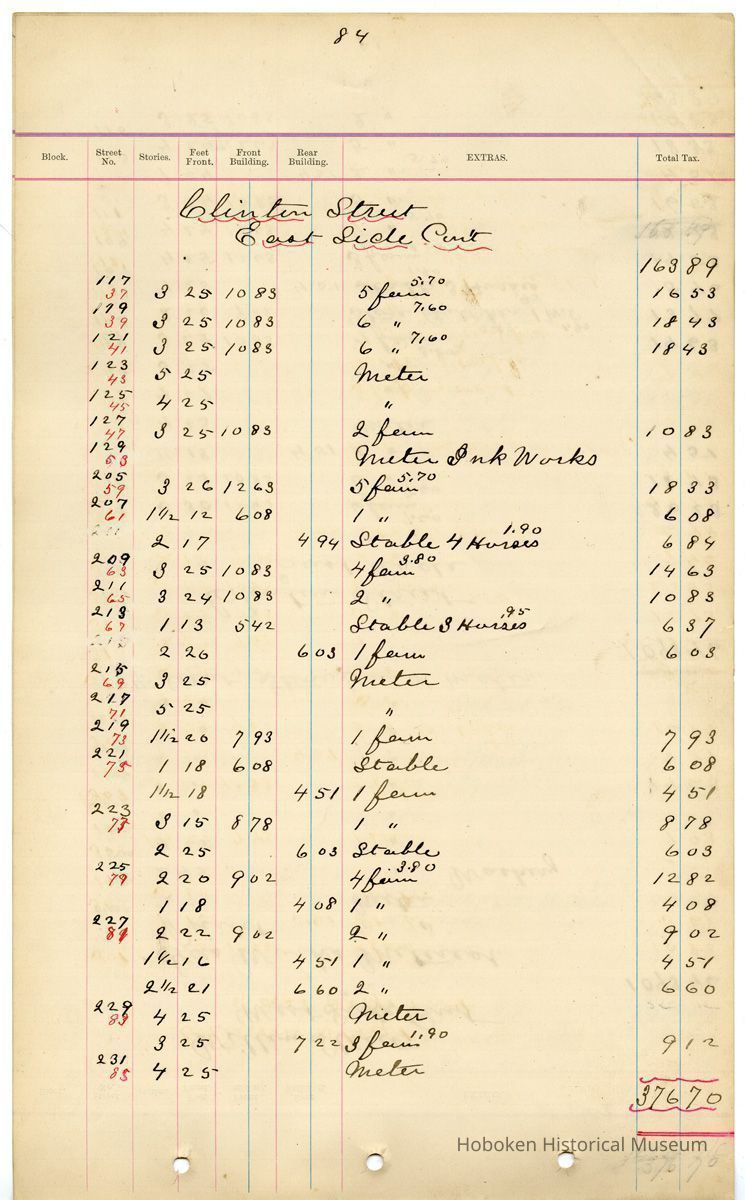 84
Block. Street No. Stories. Feet Front. Front Building. Rear Building. EXTRAS. Total Tax.
Clinton Street
East Side Con't
163 89
117 37 3 25 10 83 5 fam 5.70 16 53
119 39 3 25 10 83 6 " 7.60 18 43
121 41 3 25 10 83 6 " 7.60 18 43
123 43 5 25 Meter
125 45 4 25 "
127 47 3 25 10 83 2 fam 10 83
129 53 Meter Ink Works
205 59 3 26 12 63 5 fam 5.70 18 33
207 61 1 1/2 12 6 08 1 " 6 08
2 17 4 94 Stable 4 Horses 1.90 6 84
209 63 3 25 10 83 4 fam 3.80 14 63
211 65 3 24 10 83 2 " 10 83
213 67 1 13 5 42 Stable 3 Horses 95 6 37
2 20 6 03 1 fam 6 03
215 69 3 25 Meter
217 71 5 25 "
219 73 1 1/2 20 7 93 1 fam 7 93
221 75 1 18 6 08 Stable 6 08
1 1/2 18 4 51 1 fam 4 51
223 3 15 8 78 1 " 8 78
2 25 6 03 Stable 6 03
225 79 2 20 9 02 4 fam 3.80 12 82
1 18 4 08 1 " 4 08
227 81 2 22 9 02 2 " 9 02
1 1/2 16 4 51 1 " 4 51
2 1/2 21 6 60 2 " 6 60
229 83 4 25 Meter
3 25 7 22 3 fam 1.90 9 12
231 85 4 25 Meter
376 70
Hoboken Historical Museum